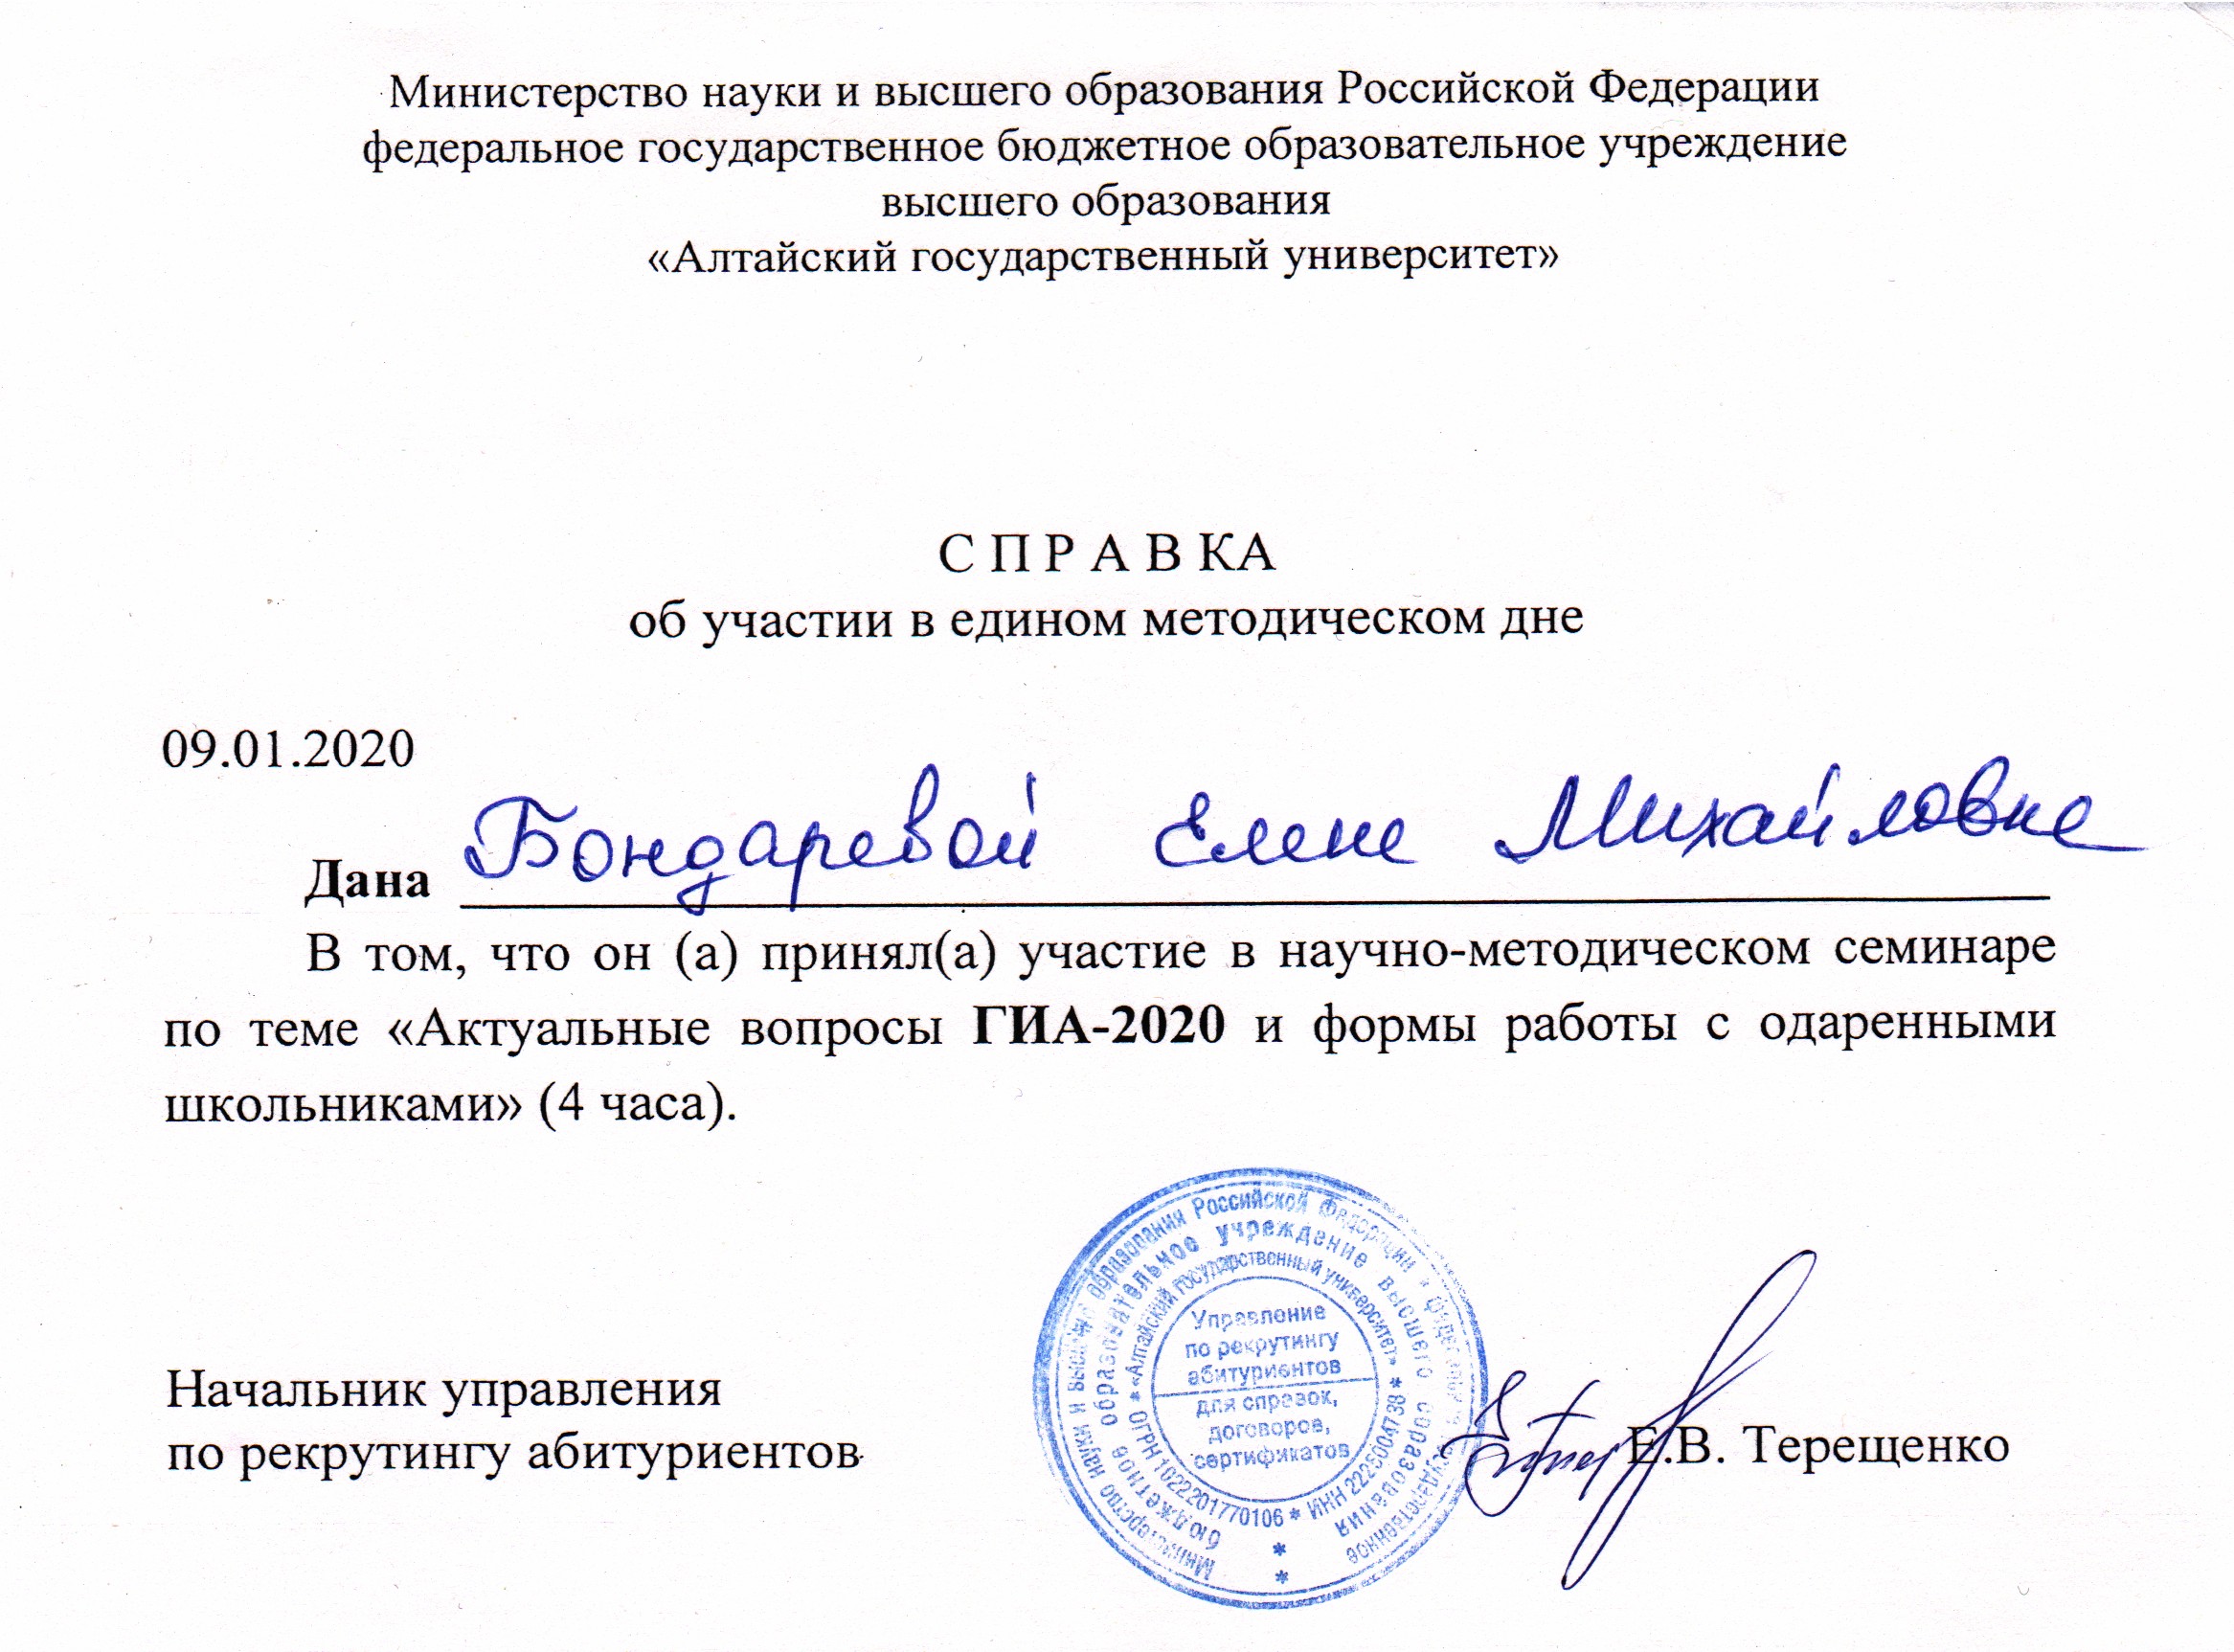 Министерство науки и высшего образования Российской Федерации
федеральное государственное бюджетное образовательное учреждение
высшего образования
«Алтайский государственный университет»
С П Р А В КА
об участии в едином методическом дне
09.01.2020
Дана Бондаревой Елене Михайловне
В том, что он (а) принял(а) участие в научно-методическом семинаре
по теме «Актуальные вопросы ГИА-2020 и формы работы с одаренными
школьниками» (4 часа).
Министерство науки и высшего образования Российской Федерации * федеральное государственное
бюджетное образовательное учреждение высшего образования
* «Алтайский государственный университет» *
ОГРН 1022201770106 * ИНН 2225004738 *
Управление
по рекрутингу
абитуриентов
для справок,
договоров,
сертификатов
Начальник управления
по рекрутингу абитуриентов
Е.В. Терещенко